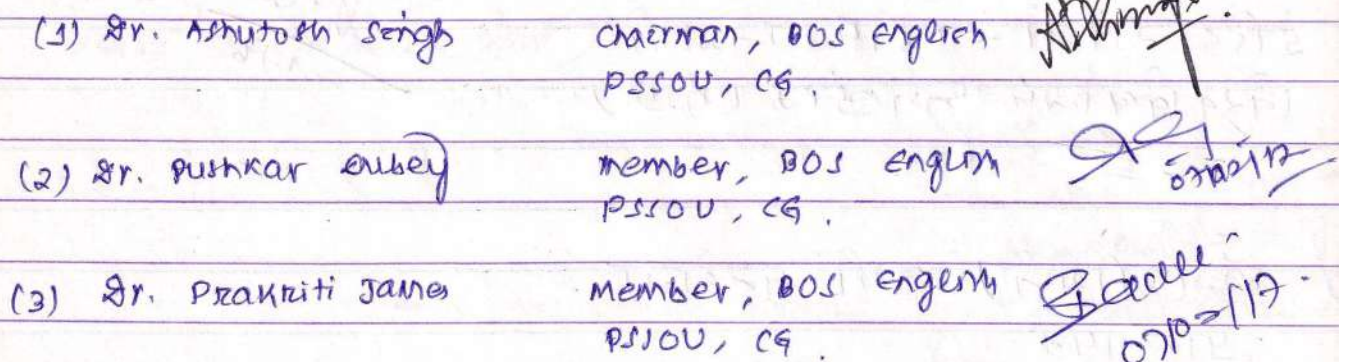 (1) Dr. Ashutosh Singh chairman, BOS English
PSSOU, CG.
(2) Dr. Pushkar Dubey member, BOS English
PSSOU, CG.
07/02/17
(3) Dr. Prakriti James member, BOS English
PSSOU, CG.
07/02/17.